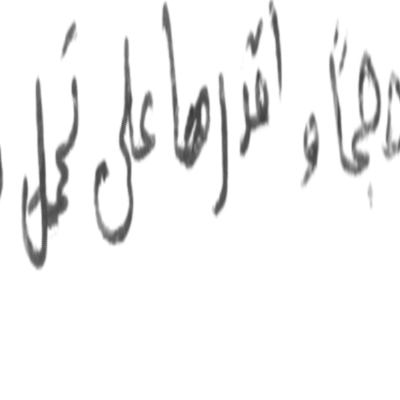 حجماً و اقدرها على تحمل